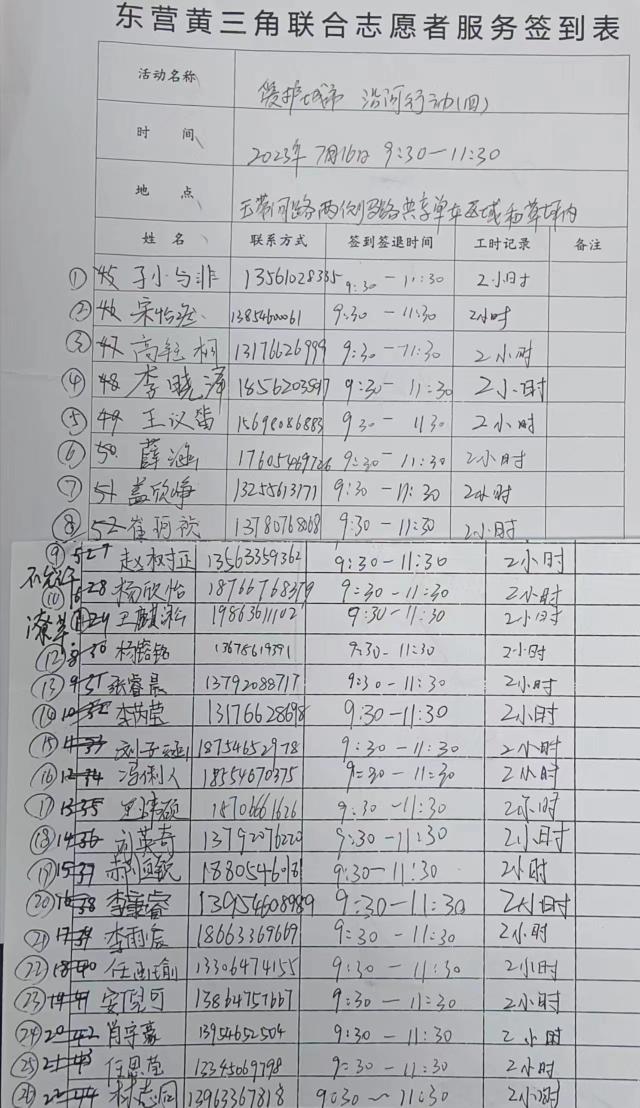 东营黄三角联合志愿者服务签到表
活动名称 爱护城市 沿河行动(四)
时 间 2023年7月16日 9:30-11:30
地 点 玉带河路两侧及路共享单车区域和草坪内
姓 名 联系方式 签到签退时间 工时记录 备注
① 45 于小与非 13561028385 9:30-11:30 2小时
② 46 宋怡 1385460061 9:30-11:30 2小时
③ 47 高 桐 13176626999 9:30-11:30 2小时
④ 48 李晓泽 18562035 9:30-11:30 2小时
⑤ 49 王议 15698086883 930-1130 2小时
⑥ 50 薛涵 17605469726 9:30-11:30 2小时
⑦ 51 盖欣峥 13255613171 9:30-11:30 2小时
⑧ 52 崔珂 13780768068 9:30-11:30 2小时
⑨ 赵树正 13563359362 9:30-11:30 2小时
不允许
⑩ 28 杨欣怡 18766768379 9:30-11:30 2小时
潦草 29 王麒淞 19863611102 9:30-11:30 2小时
⑫ 30 杨 13678619391 9:30-11:30 2小时
⑬ 9 张睿晨 13792088717 9:30-11:30 2小时
⑭ 10 李芮莹 13176628698 9:30-11:30 2小时
⑮ 刘子 18754652978 9:30-11:30 2小时
⑯ 12 冯俐人 18554670375 9:30-11:30 2小时
⑰ 13 35 硕 18706661626 9:30-11:30 2小时
⑱ 14 36 刘英奇 13792076220 9:30-11:30 2小时
⑲ 15 37 郝恒锐 9:30-11:30 2小时
⑳ 16 38 李 睿 13954608989 9:30-11:30 2小时
21 17 39 李雨宸 18663369669 9:30-11:30 2小时
22 18 40 任 瑜 13306474155 9:30-11:30 2小时
23 19 41 安倪可 13864757667 9:30-11:30 2小时
24 20 42 肖宇豪 13954652504 9:30-11:30 2小时
25 21 43 任思莹 13345069798 9:30-11:30 2小时
26 22 44 林志同 13963367818 9:30-11:30 2小时